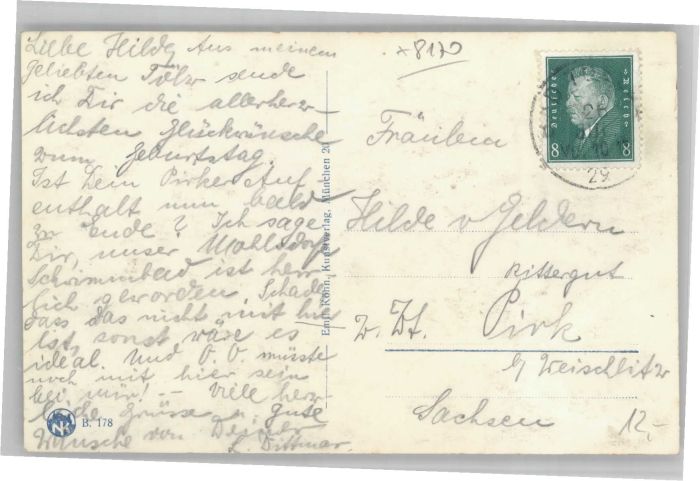 Liebe Hilde, Aus meinem
geliebten Tölz sende
ich Dir die allerherz-
lichsten Glückwünsche
zum Geburtstag.
Ist Dein Pirker Auf-
enthalt nun bald
zu ende? Ich sage
Dir, unser Wohlsdorf
Schwimmbad ist herr-
lich geworden. Schade,
dass das nicht mit
ist, sonst wäre es
ideal. Und O. O. müsste
noch mit hier sein
bei mir! - Viele herz-
liche Grüsse u. gute
Wünsche von Deiner
L. Dittmar.
B. 178
NK
Emil Köhn, Kunstverlag, München 20
x8170
Deutsches Reich
8 8
29
Fräulein
Hilde v Geldern
Rittergut
z. Zt. Pirk
b/ Weischlitz
Sachsen
12,-